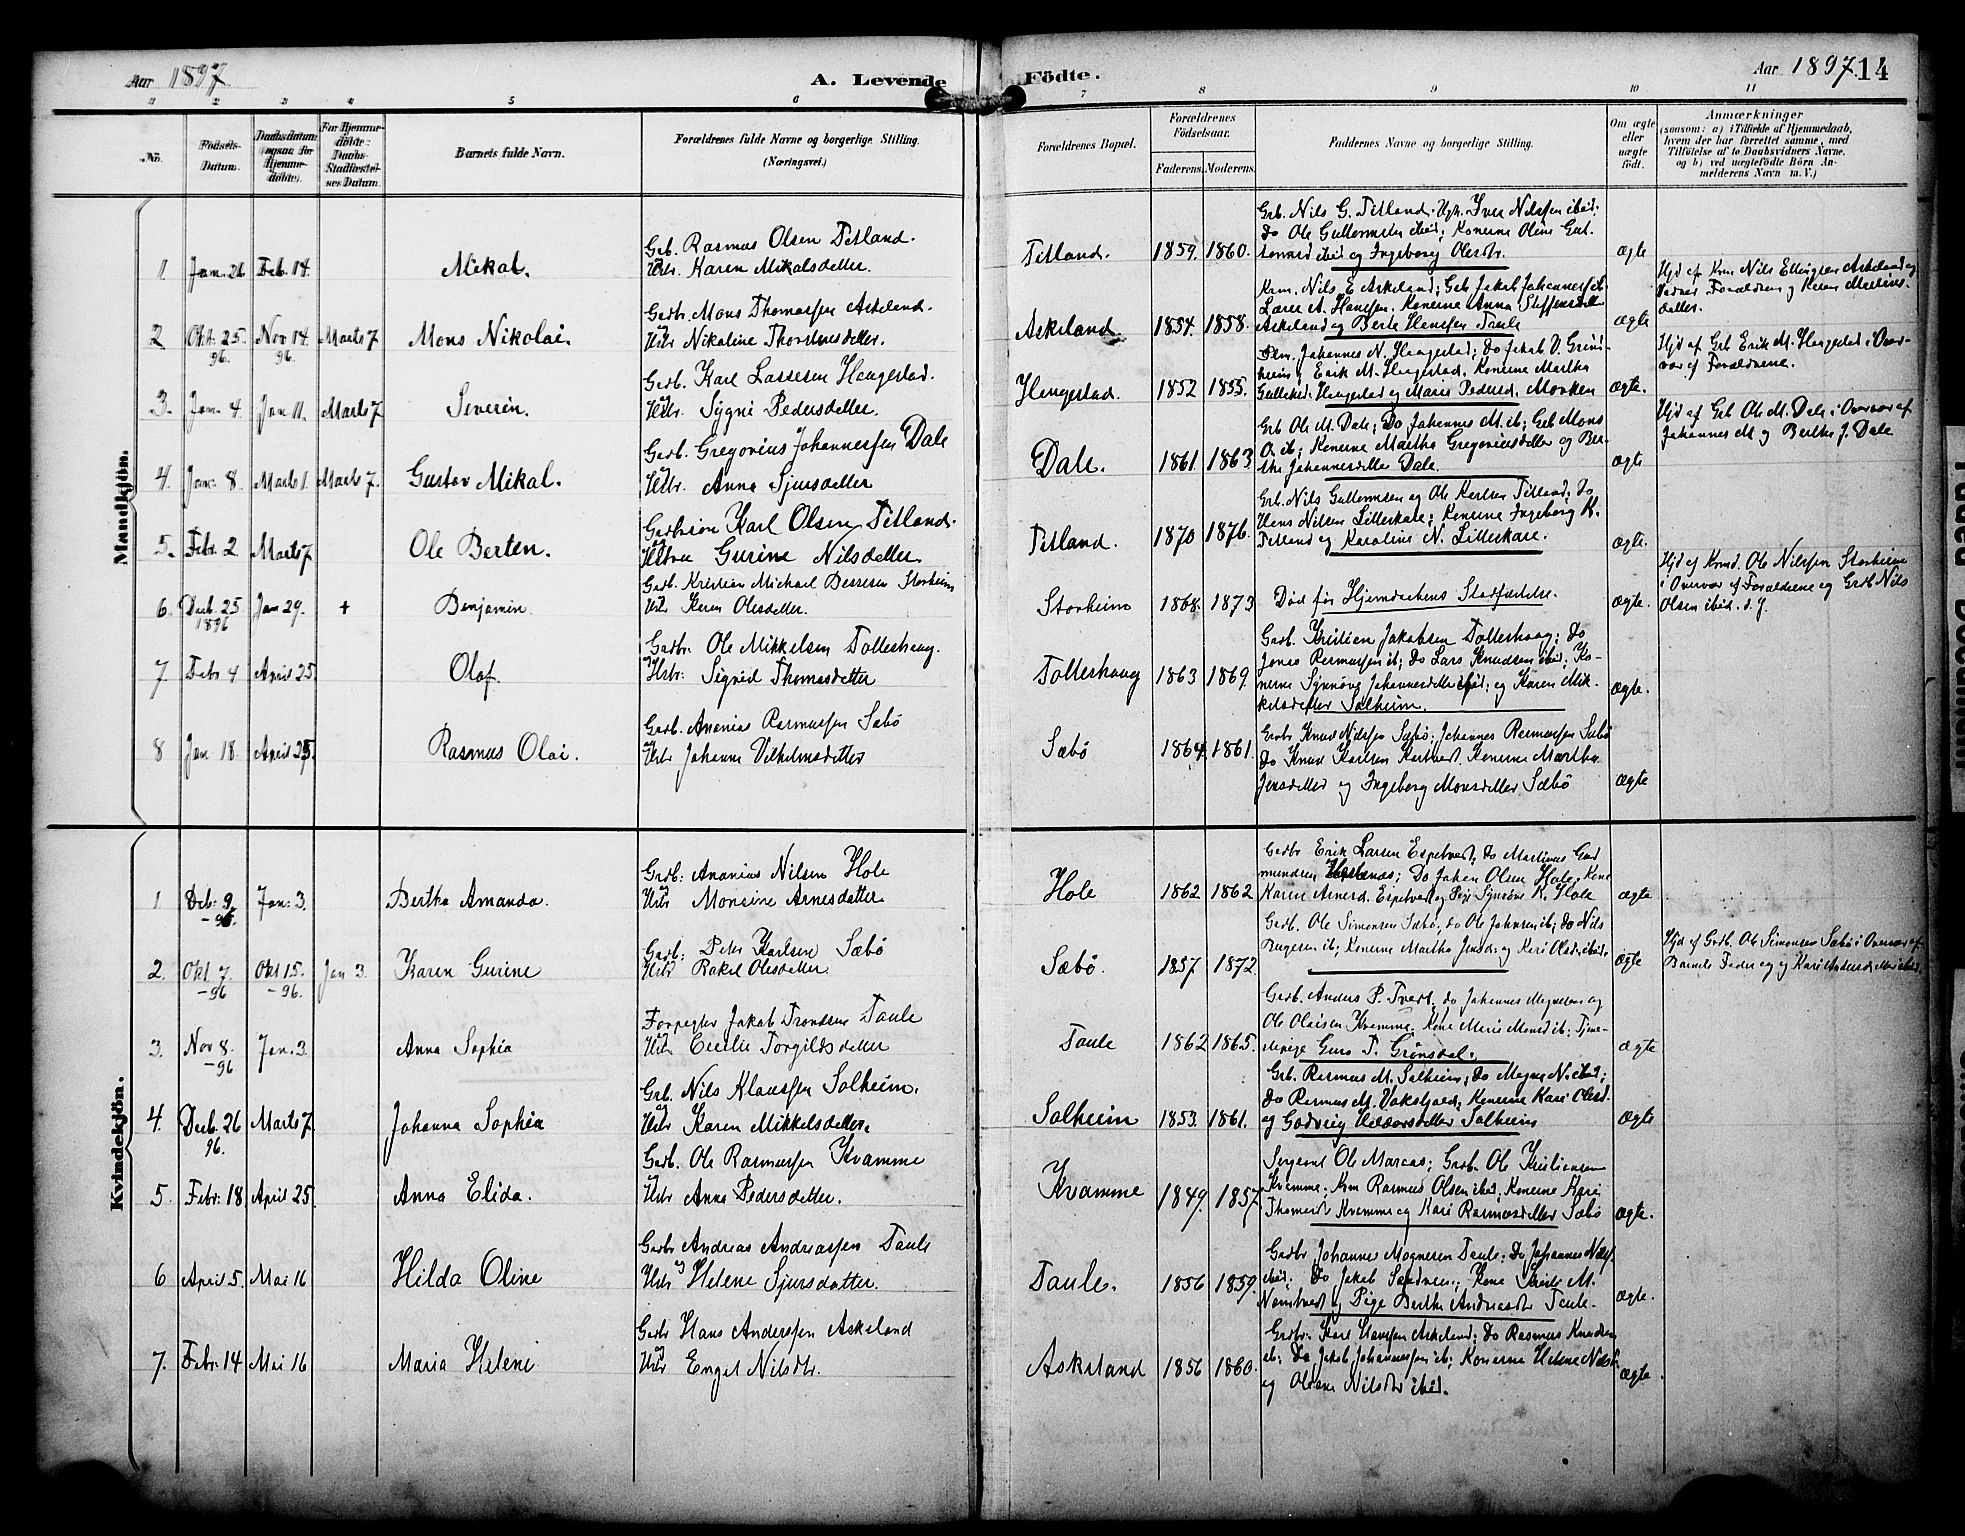 Aar 1897
A. Levende Födte.
Aar 1897. 14
1 2 3 4 5 6 7 8 9 10 11
No.
Födsels-Datum.
Daabsdatum
For Hjemme-döbte: Daabs-Stadfæstel-ses Datum.
Barnets fulde Navn.
Forældrenes fulde Navne og borgerlige Stilling.
(Næringsvei.)
Forældrenes Bopæl.
Forældrenes Födselsaar.
Faderens. Moderens.
Faddernes Navne og borgerlige Stilling.
Om ægte eller uægte födt.
Anmærkninger
(saasom: a) i Tilfælde af Hjemmedaab,
hvem der har forrettet samme, med
Tilföielse af to Daabsvidners Navne,
og b) ved uægtefödte Börn An-
melderens Navn m. V.)
Mandkjön.
1. Jan. 26 Feb. 14. Mikal.
Grb. Rasmus Olsen Titland.
og Hstr. Karen Mikalsdatter.
Titland. 1859. 1860.
Grb. Nils G. Titland. Ugk. Iver Nilssen ibid;
Do Ole Gullormsen ibid; Konerne Oline Gul-
lormsd ibid og Ingeborg Olesdtr.
ægte
2 Okt. 25. 96. Nov 14. 96. Marts 7 Mons Nikolai.
Gadbr. Mons Thomassen Askeland.
og Hstr Nikoline Thordsdatter.
Askeland. 1854. 1858.
Krm. Nils E Askeland; Grb Jakob Johannessen ib
Lars A. Hanssen. Konerne Anna Steffensdatter
Askeland og Berte Hanssen Taule
ægte
Hjd af Krm. Nils Ellingsen Askeland og
3. Jan. 4. Jan 11. Marts 7 Severin.
Gadb. Karl Lassesen Haugestad.
og Hstr. Sygni Pedersdatter.
Haugestad. 1852 1855.
Johannes N. Haugestad; Do Jakob O. Grind-
heim; Erik M. Haugestad. Konerne Martha
Haugestad og Marie Pedersd. Monken
ægte.
Hjd af Grb Erik M. Haugestad i Over-
vær af Forældrene.
4. Jan. 8. Marts 1. Marts 7. Gustav Mikal.
Gadb. Gregorius Johannessen Dale
Hstr. Anna Sjursdatter
Dale. 1861. 1863.
Grb Ole M. Dale; Do Johannes M. ib; Grb Mons
O. ib; Konerne Martha Gregoriusdatter og Ber-
the Johannesdatter Dale.
ægte
Hjd af Grb Ole M. Dale i Overvær af
Johannes M og Berthe J. Dale
5. Febr. 2 Marts 7 Ole Berten.
Gadbrson Karl Olsen Titland.
og Hstru Gurine Nilsdatter.
Titland. 1870 1876.
Grb. Nils Gullormsen og Ole Karlsen Titland; Do
Hans Nilsen Lillerkare; Konerne Ingeborg K.
Titland og Karoline N. Lillerkare.
ægte.
6. Decb. 25 1896 Jan 29. + Benjamin.
Gadb. Kristian Michael Storheim
og Hstr Karen Olesdatter.
Storheim 1868. 1873.
Död før Hjemdaabens Stadfæstelse.
ægte.
Hjd af Krmd. Ole Nilssen Storheim
i Overvær af Forældrene og Grdb Nils
Olsen ibid. d. J.
7 Febr 4 April 25. Olaf.
Gadbr. Ole Mikkelsen Tolleshaug.
og Hstr: Sigrid Thomasdatter
Tolleshaug 1863 1869.
Gadb. Kristian Jakobsen Tolleshaug; Do
Jonas Rasmussen ib; Do Lars Knudsen ibid; Ko-
nerne Synnöve Johannesdatter ibid; og Karen Mik-
kelsdatter Solheim.
ægte.
8 Jan 18. April 25. Rasmus Olai.
Gadb. Ananias Rasmussen Sæbö
og Hstr Johanna Vilhelmsdatter
Sæbö 1864. 1861.
Gadbr Knud Nilssen Sæbö; Johannes Rasmussen Sæbö
Do Knud Karlsen Kartveit. Konerne Martha
Jensdatter og Ingeborg Monsdatter Sæbö
ægte
Kvindekjön.
1 Decb. 9 -96. Jan: 3. Bertha Amanda.
Grdb: Ananias Nilsen Hole
og Hstr Monsine Arnesdatter
Hole 1862 1862
Gadbr Erik Larsen Espetveit; Do Martinus Gud
mundsen; Do Johan Olsen Hole. Kone
Karen Arnesd. Espetveit og Pige Synnöve K. Hole
ægte
2. Okt 7 -96 Okt 15. -96. Jan 3. Karen Gurine
Gadb: Peter Karlsen Sæbö
og Hstr Rakel Olesdatter
Sæbö. 1857 1872
Gadb. Ole Simonsen Sæbö; do Ole Johnsen ib; do Nils
ib; Konerne Martha Jensd; og Kari Olsd. ibid.
ægte
Hjd af Grdb. Ole Simonsen Sæbö i Overvær af
Barnets Fader og Kari Andersdatter ibid.
3. Nov 8. -96 Jan. 3 Anna Sophia
Forpagter Jakob Trondsen Taule
og Hstr Cecilie Torgildsdatter
Taule 1862 1865.
Gadb. Anders P. Tvert. do Johannes Magnesen og
Ole Olaisen Kvamme. Kone Marie Monsd ib; Tjene-
stepige Guro T. Grönsdal.
ægte
4. Decb. 26 96. Marts 7 Johanna Sophia
Grb. Nils Klaussen Solheim.
og Hstr Karen Mikkelsdatter.
Solheim 1853. 1861.
Grb. Rasmus M. Solheim; do Magne N. ibid;
do Rasmus M. Vakstjord; Konerne Kari Olesd.
og Gødvig Haldorsdatter Solheim
ægte
5. Febr: 18 April 25. Anna Elida.
Gadb. Ole Rasmussen Kvamme
og Hstr Anna Pedersdatter.
Kvamme 1849. 1857.
Sergeant Ole Marcus; Grdb. Ole Kristiansen
Kvamme; Krm Rasmus Olsen ibid; Konerne Kari
Thomasd. Kvamme og Kari Rasmusdatter Sæbö
ægte.
6 April 5. Mai 16 Hilda Oline
Gadbr Andreas Andreassen Taule
og Hstr Helene Sjursdatter.
Taule. 1856 1859.
Gadbr Johannes Magnesen Taule; Do Johannes Nilss.
ibid; Do Jakob Sandven; Kone M.
Namtvedt og Pige Berthe Andreasdtr Taule.
ægte.
7. Febr. 14 Mai 16 Maria Helene
Gadbr Hans Anderssen Askeland
og Hstr Engel Nilsdtr.
Askeland 1856 1860.
Gadbr: Karl Hanssen Askeland; Do Rasmus Knudsen
ib; Do Jakob Johannessen ib; Konerne Helene Nilsd.
og Olene Nilsdtr ibid.
ægte.